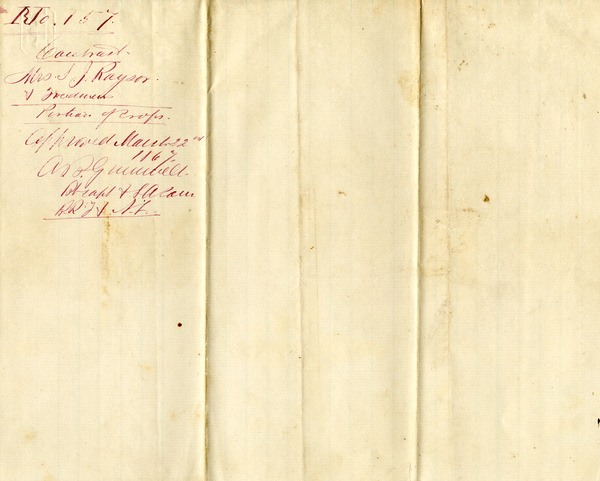 No. 157.
Contract.
Mrs. J. J. Raysor.
& Freedmen
Portion of Crops.
Approved March 22nd
1867.
A. P.
Bt Capt &
B.R.F. & A.L.